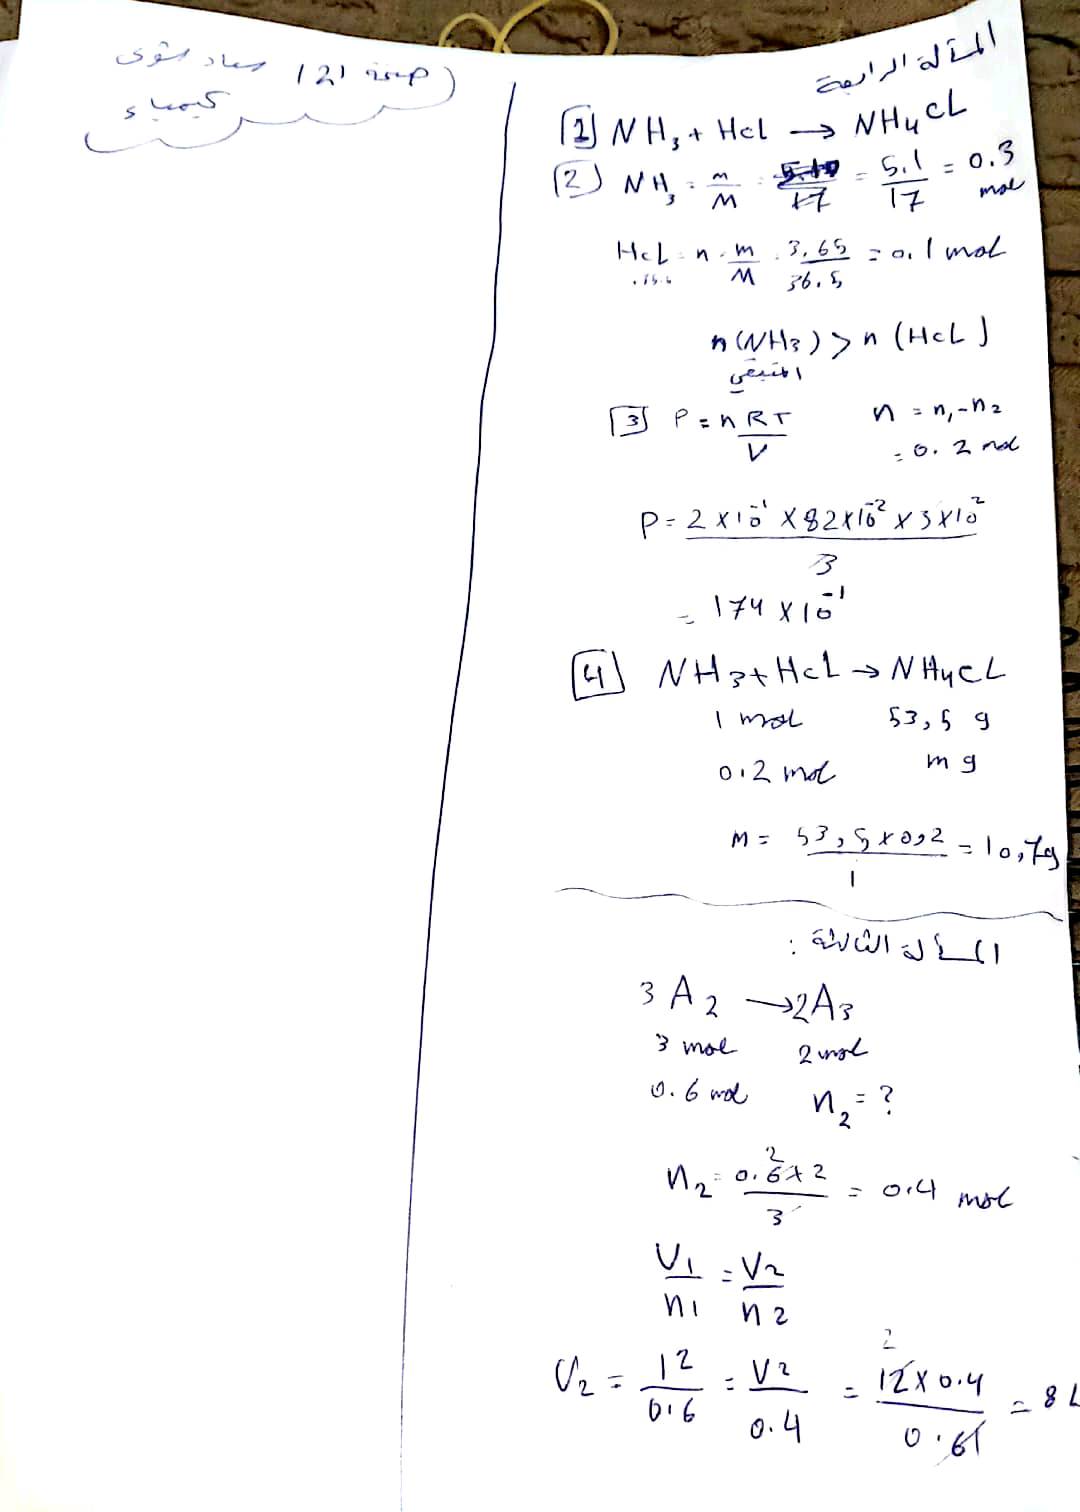 ( صفحة 121
كيمياء
المسألة الرابعة
1 NH₃ + HCL → NH₄CL
2 NH₃ = m/M = 5.1/17 = 0.3 mol
HCL = n = m/M = 3,65/36,5 = 0,1 mol
n(NH₃) > n(HCL)
المتبقي
3 P = nRT/V n = n₁-n₂
= 0.2 mol
P = 2×10⁻¹ × 82×10⁻² × 3×10²
3
= 174 × 10⁻¹
4 NH₃ + HCL → NH₄CL
1 mol 53,5 g
0.2 mol m g
M = 53,5×0,2/1 = 10,7g
المسألة الثالثة :
3A₂ → 2A₃
3 mol 2 mol
0.6 mol n₂ = ?
n₂ = 0.6×2/3 = 0.4 mol
V₁/n₁ = V₂/n₂
V₂ = 12/0.6 = V₂/0.4 = 12×0.4/0.6 = 8 L